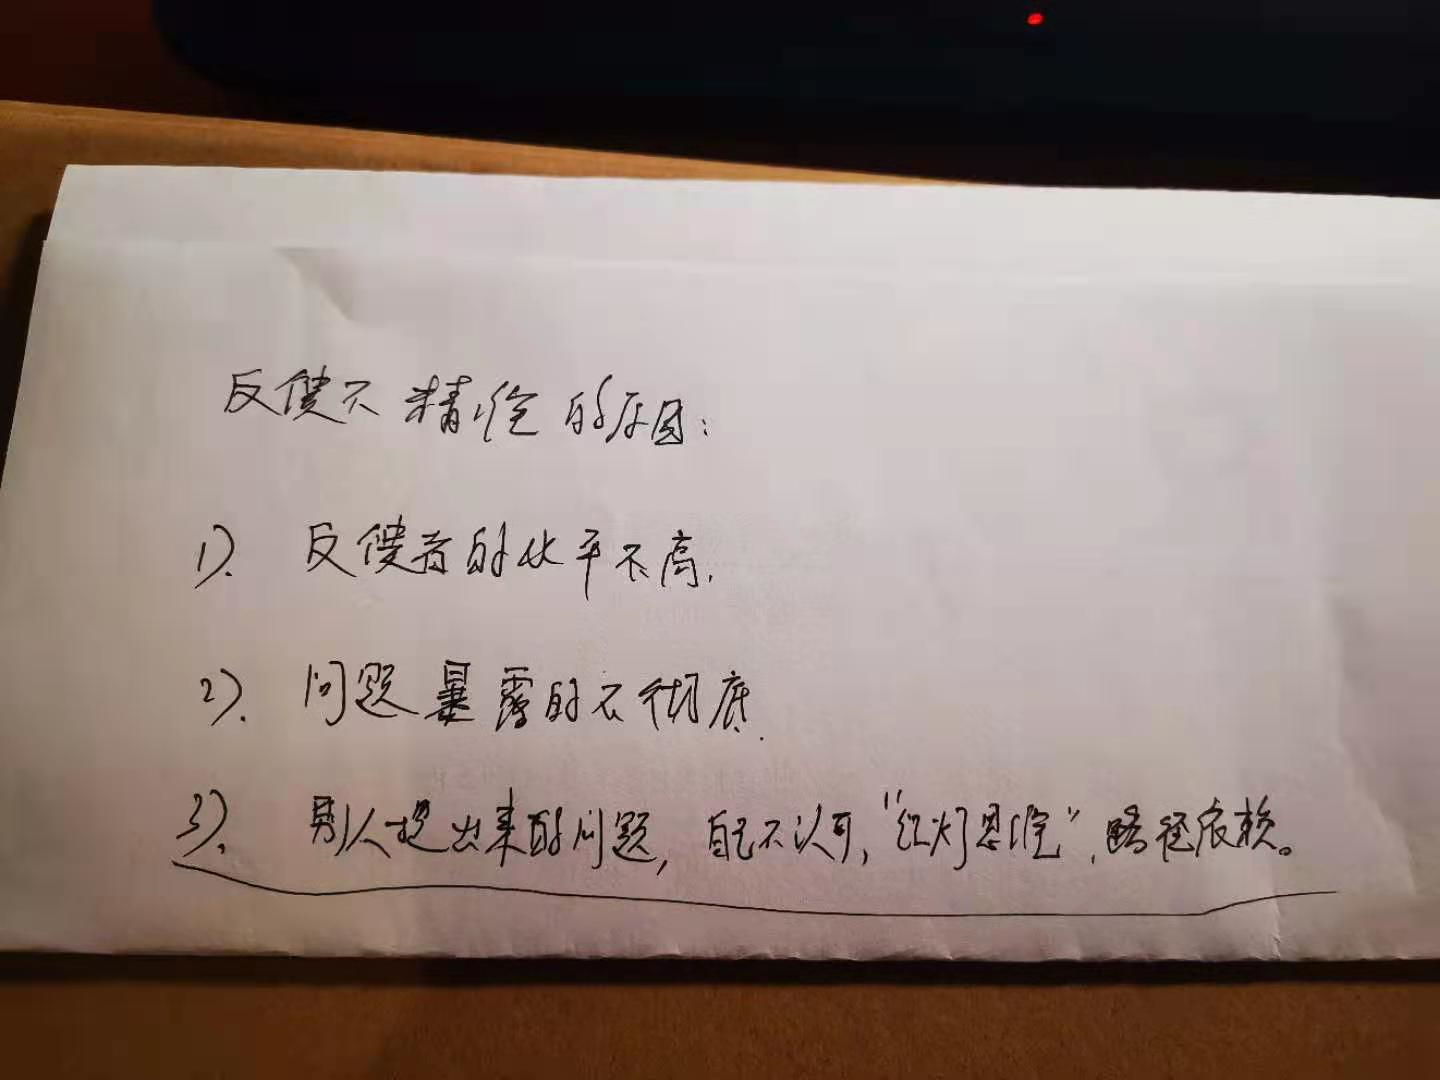 反馈不精准的原因：
1）. 反馈者的水平不高.
2）. 问题暴露的不彻底.
3）. 别人提出来的问题，自己不认可，“红灯思维”，路径依赖。